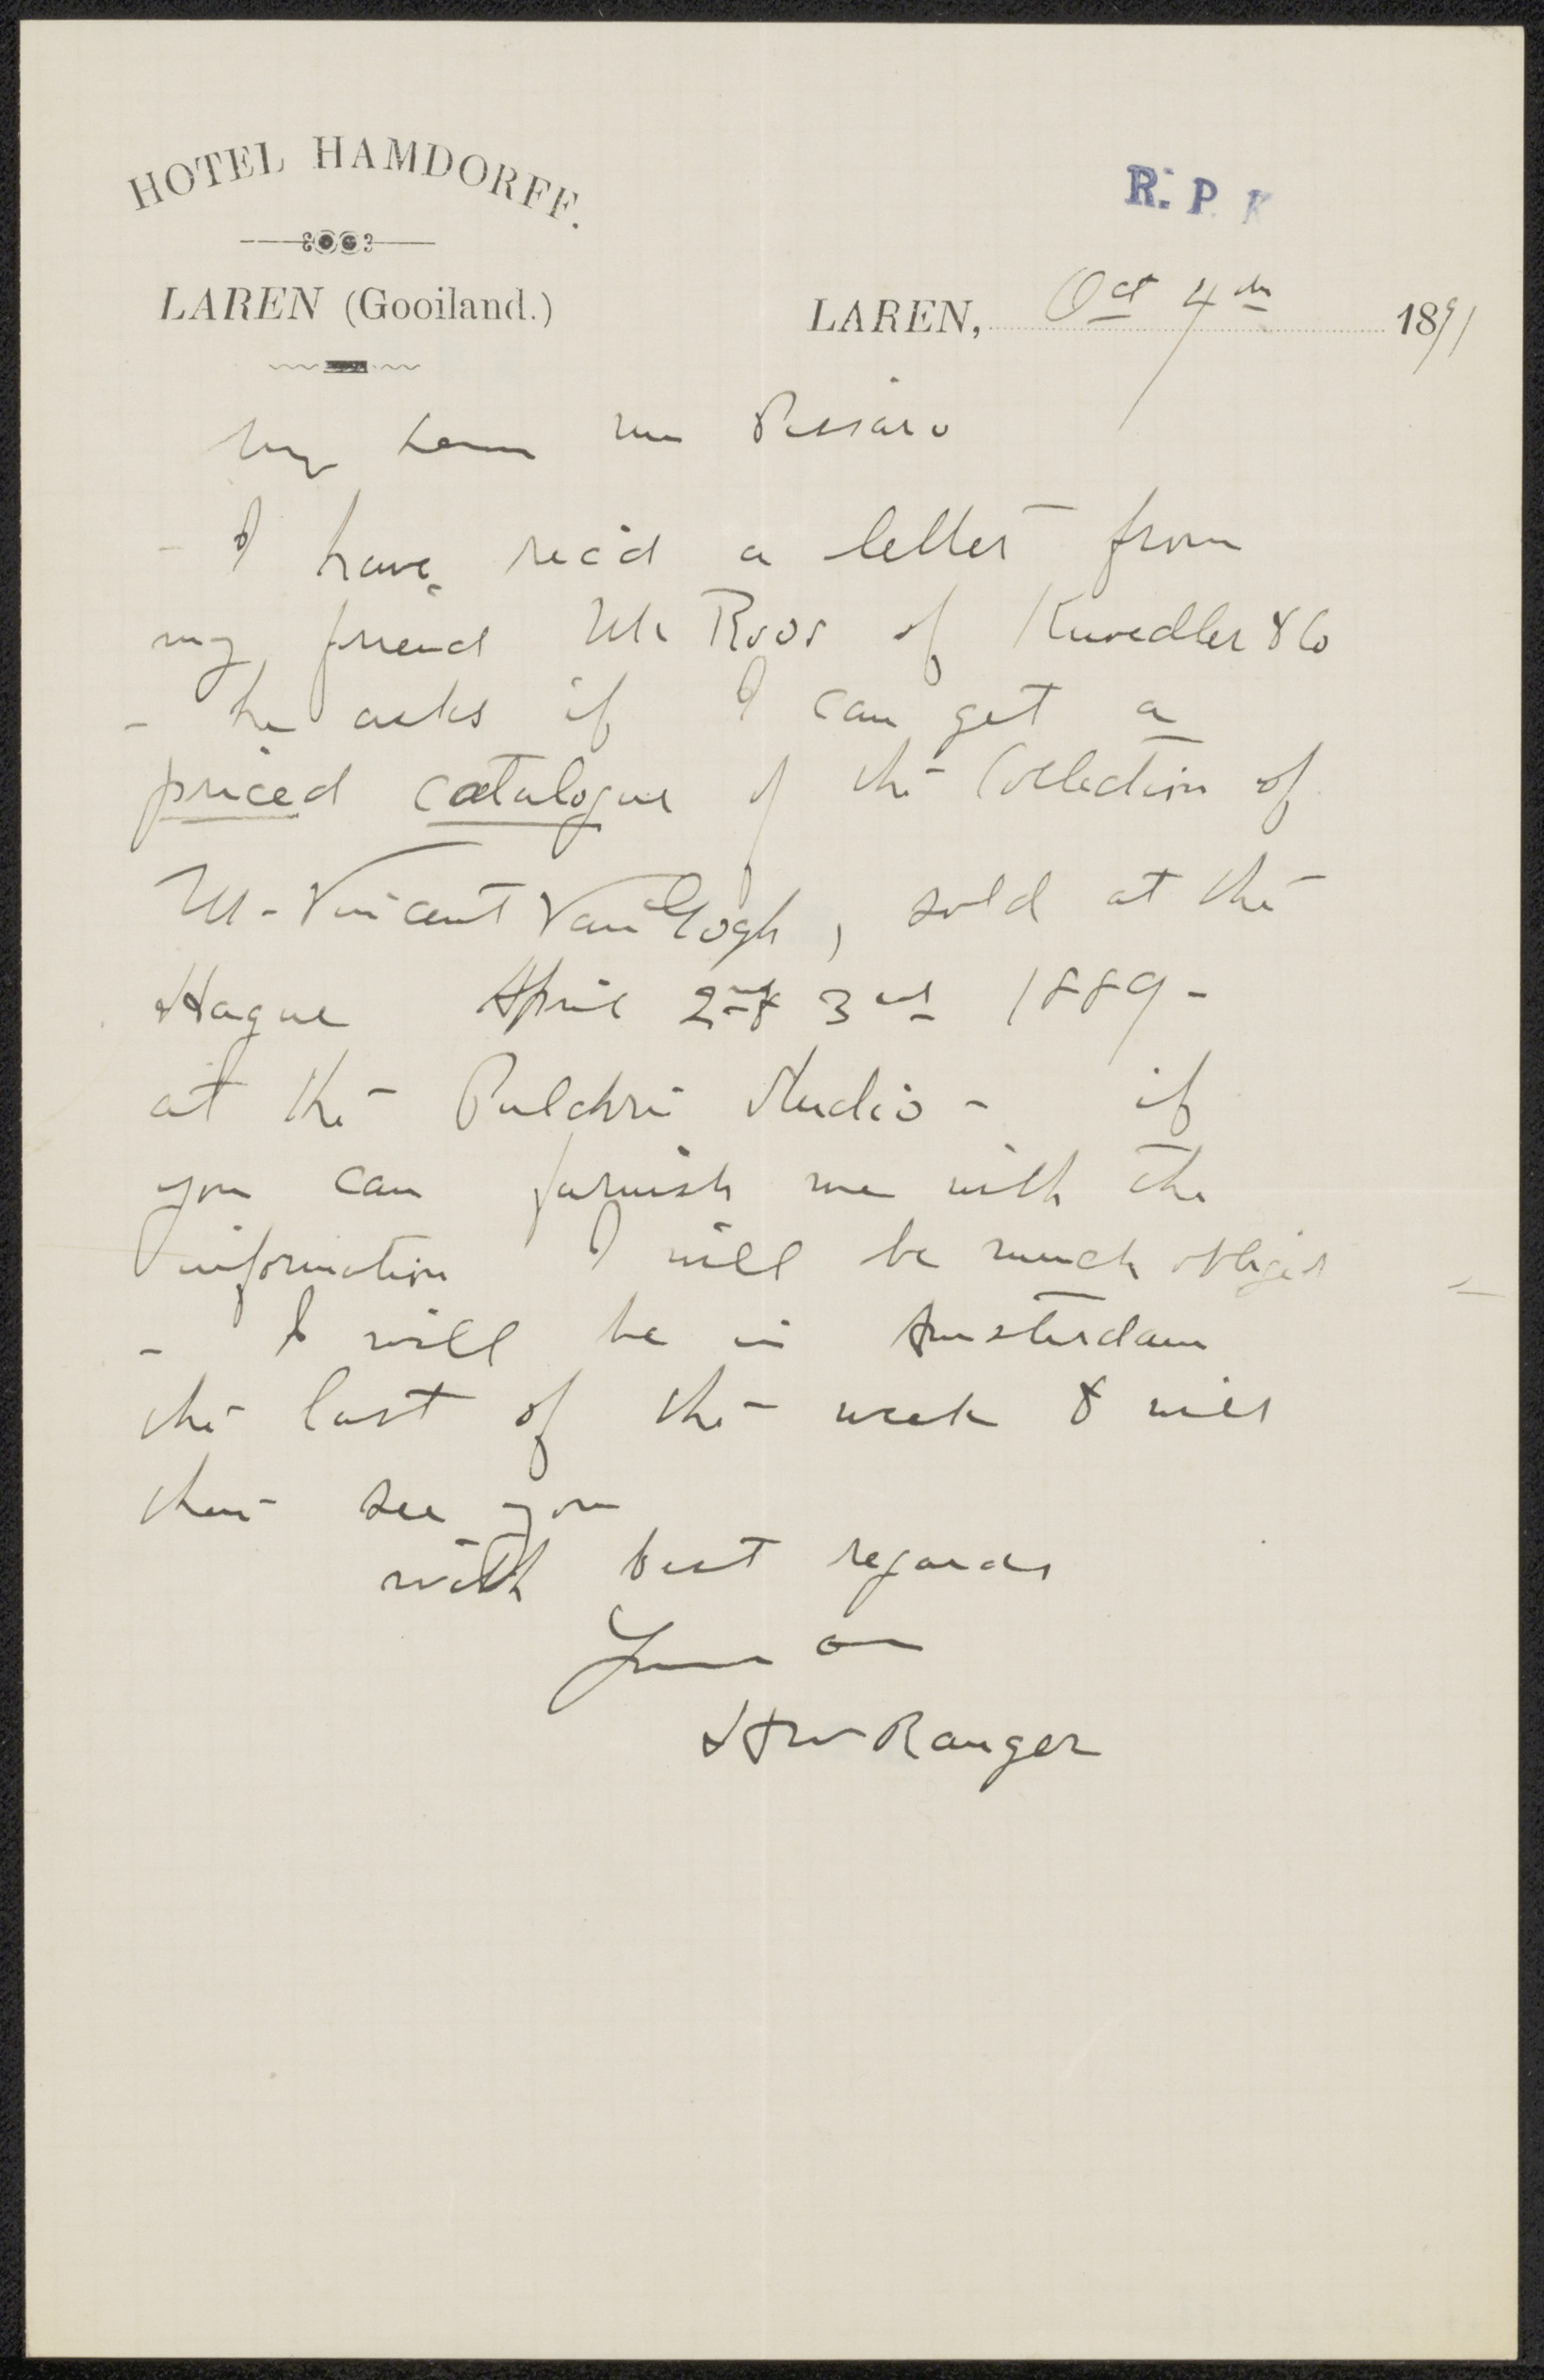 HOTEL HAMDORFF.
LAREN (Gooiland.)
R. P. K
LAREN, Oct 4th 1891
My Dear Mr Pissaro
- I have rec'd a letter from
my friend Mr Roos of Knoedler & Co
- he asks if I can get a
priced catalogue of the Collection of
M. Vincent Van Gogh, sold at the
Hague April 2nd & 3rd 1889 -
at the Pulchri Studio - if
you can furnish me with the
information I will be much obliged
- I will be in Amsterdam
the last of the week & will
then see you
with best regards
Yours
HW Ranger